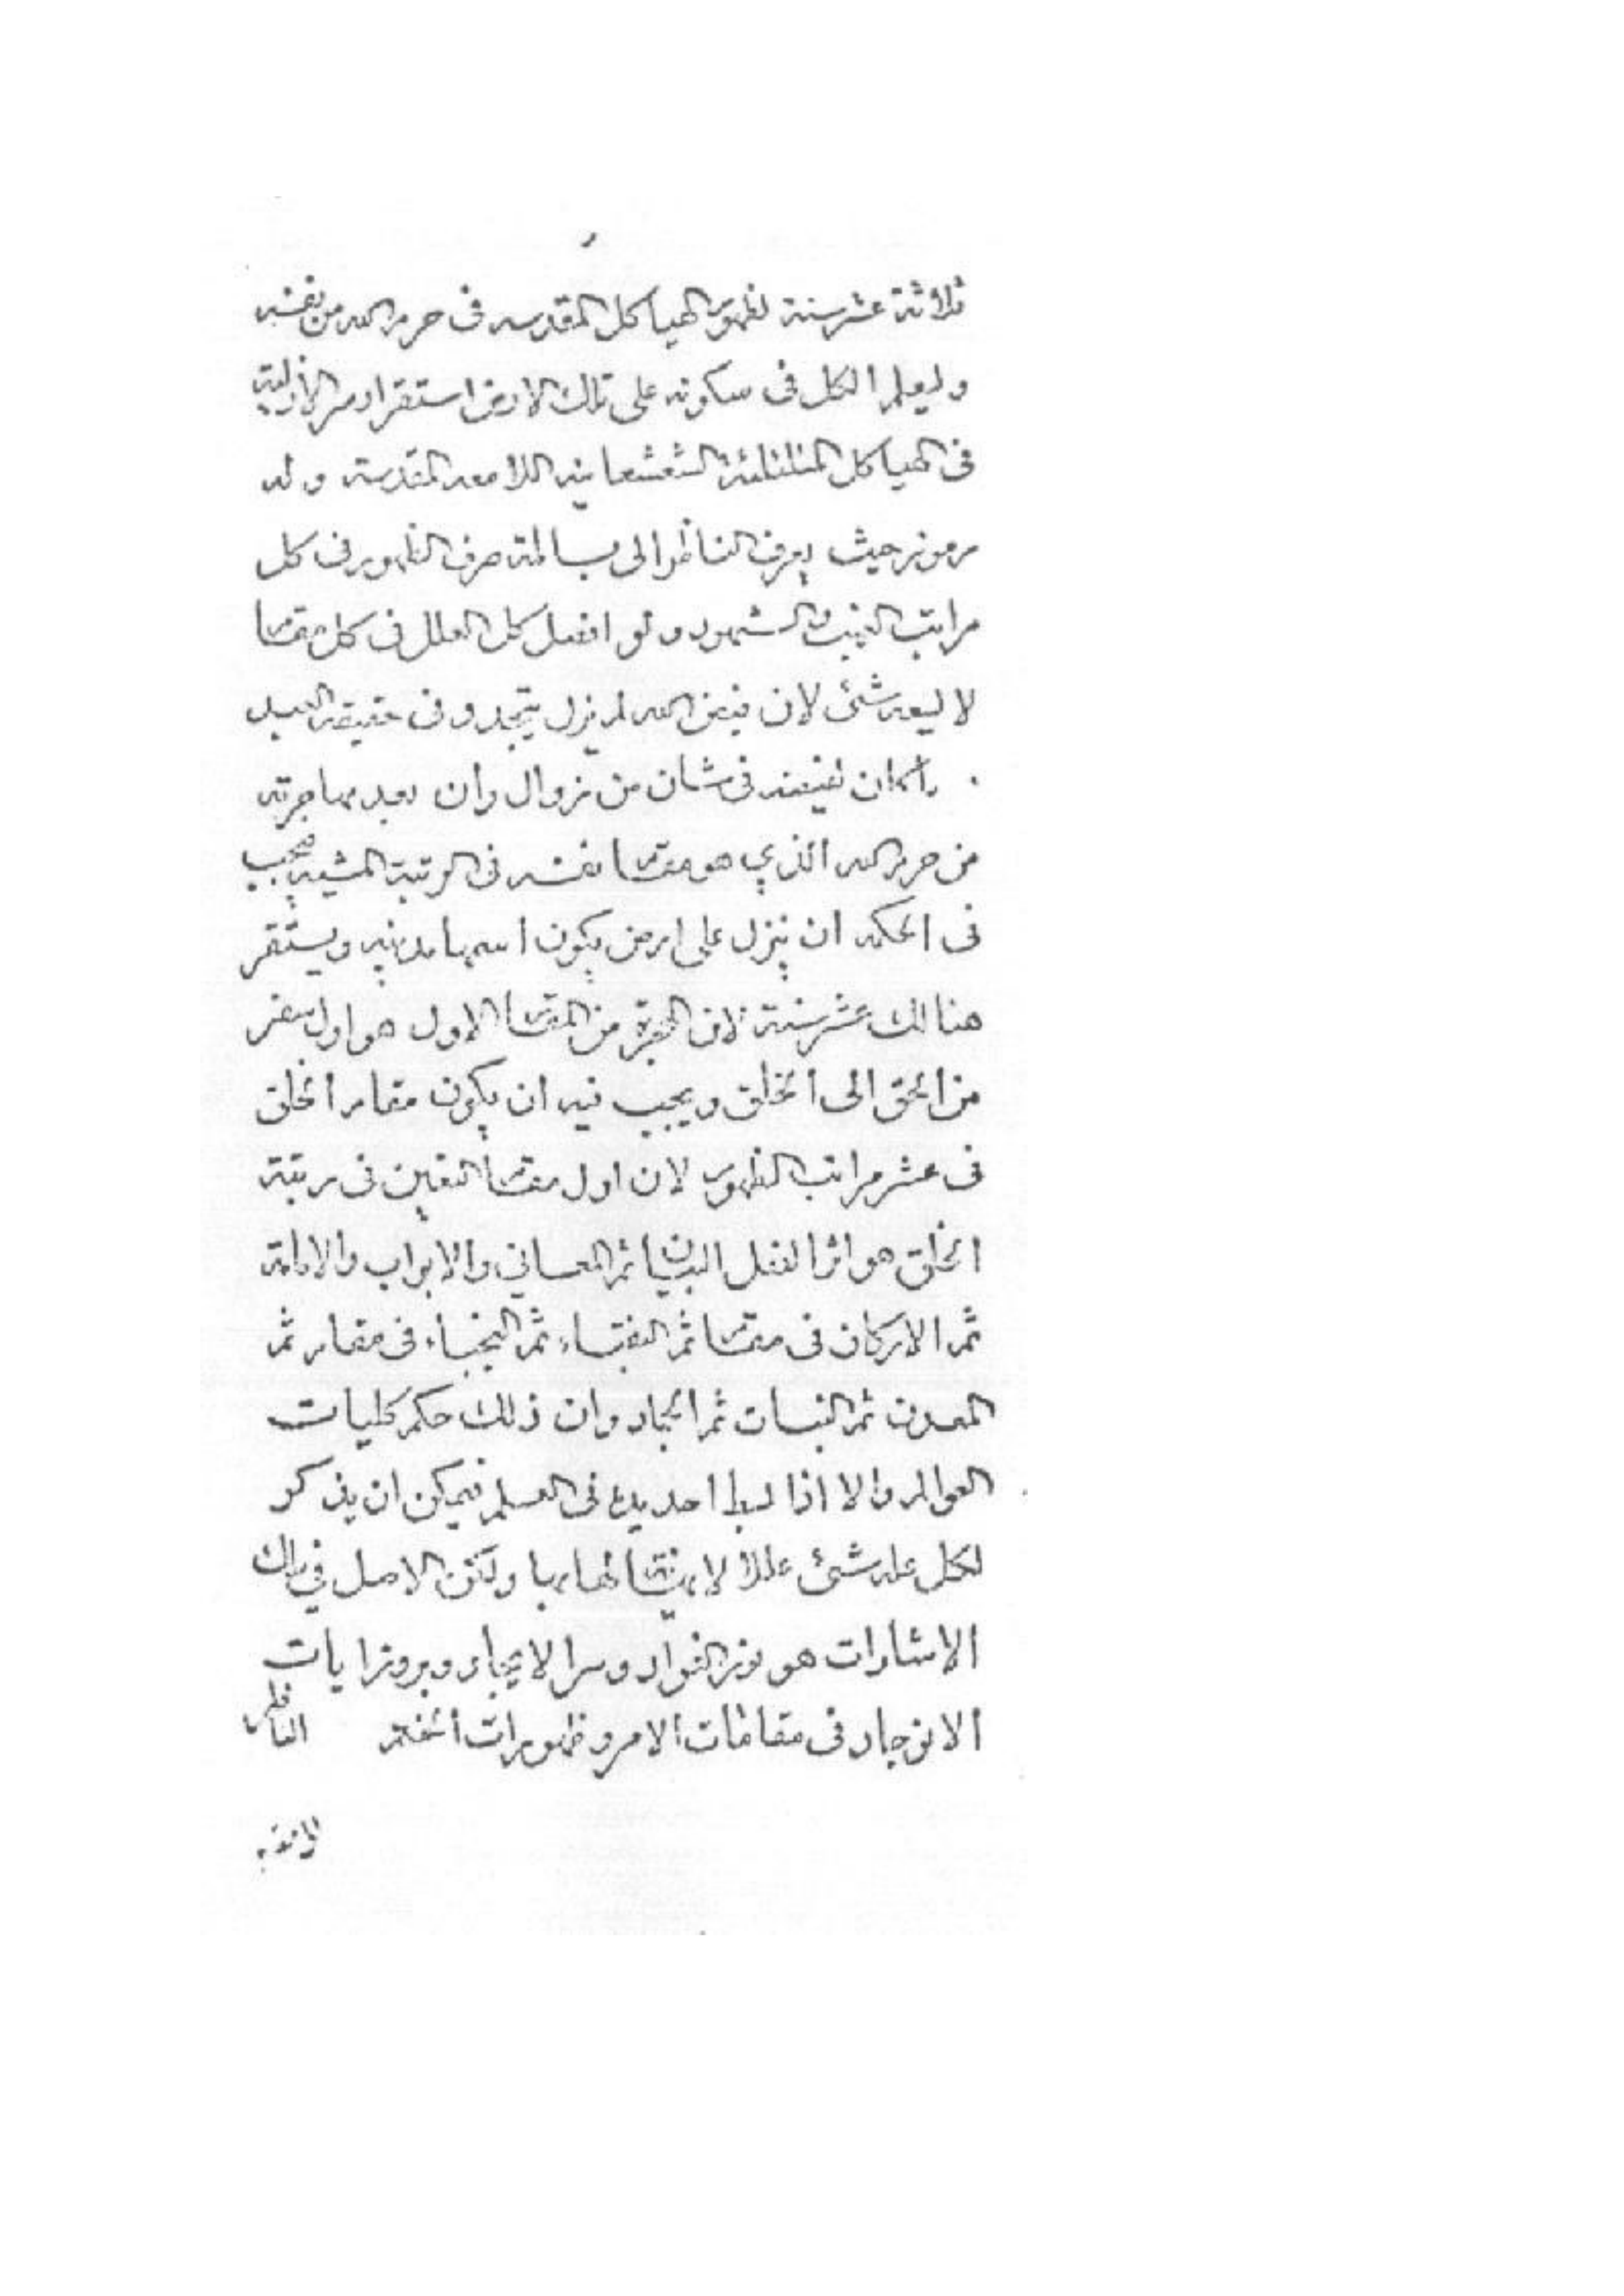 ثلاثة عشر سنة لظهور الهياكل المقدسه فى حرم الله من نفسه
وليعلم الكل فى سكونه على تلك الارض استقرار سر الازلية
فى الهياكل المتلئلئة الشعشعانيه اللامعه المقدسة وله
رموز حيث يعرف الناظر الى رسالته صرف الظهور فى كل
مراتب الغيب والشهود ولو افصل كل العلل فى كل مقام
لا يسعه شئ لان فيض الله لم يزل يتجدد فى حقيقة العبد
وما كان لفيضه فى شان من زوال وان بعد مهاجرته
من حرم الله الذي هو مقام نفسه فى الرتبة المشيه يجب
فى الحكمه ان ينزل على ارض يكون اسمها مدينه ويستقر
هنالك عشر سنة لان الهجرة من المقام الاول هو اول سفر
من الحق الى الخلق ويجب فيه ان يكون مقام الخلق
فى عشر مراتب الظهور لان اول مقام التعين فى رتبة
الخلق هو اثر الفعل البيان ثم المعاني والابواب والامامة
ثم الاركان فى مقام ثم النقباء ثم النجباء فى مقام ثم
المعدن ثم النبات ثم الجماد وان ذلك حكم كليات
العوالم والا اذا بسط احد يده فى العلم فيمكن ان يذكر
لكل عله شئ عللا لا نهاية لها بها ولكن الاصل فى تلك
الاشارات هو نور الفؤاد وسر الايجاد وبروز ايات
الانوجاد فى مقامات الامر وظهورات الختم الناظر